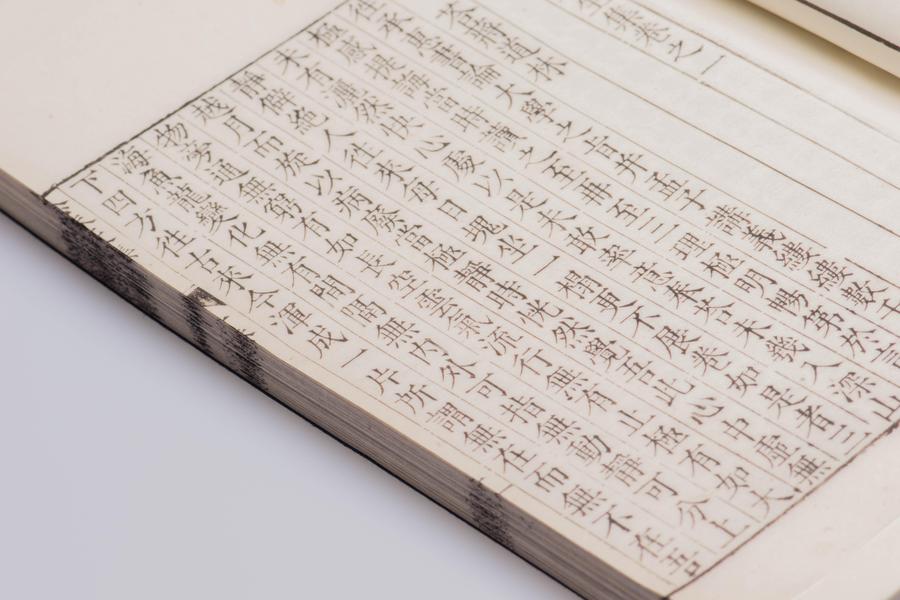 集卷之一
荅蔣道林
往承惠書論大學之旨并孟子講義縷縷數千言
極感提誨當時讀之至再至三理極明暢第於
未有灑然快心處以是未敢率意奉荅未幾入深山
靜僻絕人往來每日塊坐一榻更不展卷如是者三
越月而旋以病廢當極靜時恍然覺吾此心中虛無
物旁通無窮有如長空雲氣流行無有止極有如大
海魚龍變化無有間隔無內外可指無動靜可分上
下四方往古來今渾成一片所謂無在而無不在吾